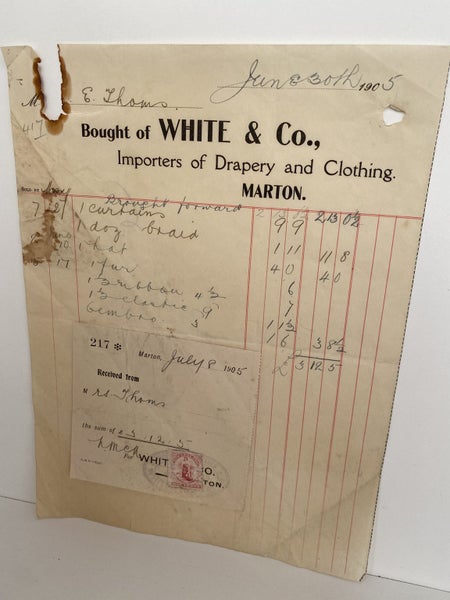 June 30th 1905
M E. Thoms.
417
Bought of WHITE & Co.,
Importers of Drapery and Clothing.
MARTON.
Brought forward 2 13 0½
7 1 curtains 9 9
1 doz braid 1 11 11 8
1 hat 40 40
17 1 fur 6
1½ ribbon 4½ 7
1½ elastic 9 11½
6 embro 3 1 6 3 8½
£ 3 12 5
217 * Marton, July 8 1905
Received from
Mrs Thoms
the sum of £3.12.5
WHIT O.
TON.